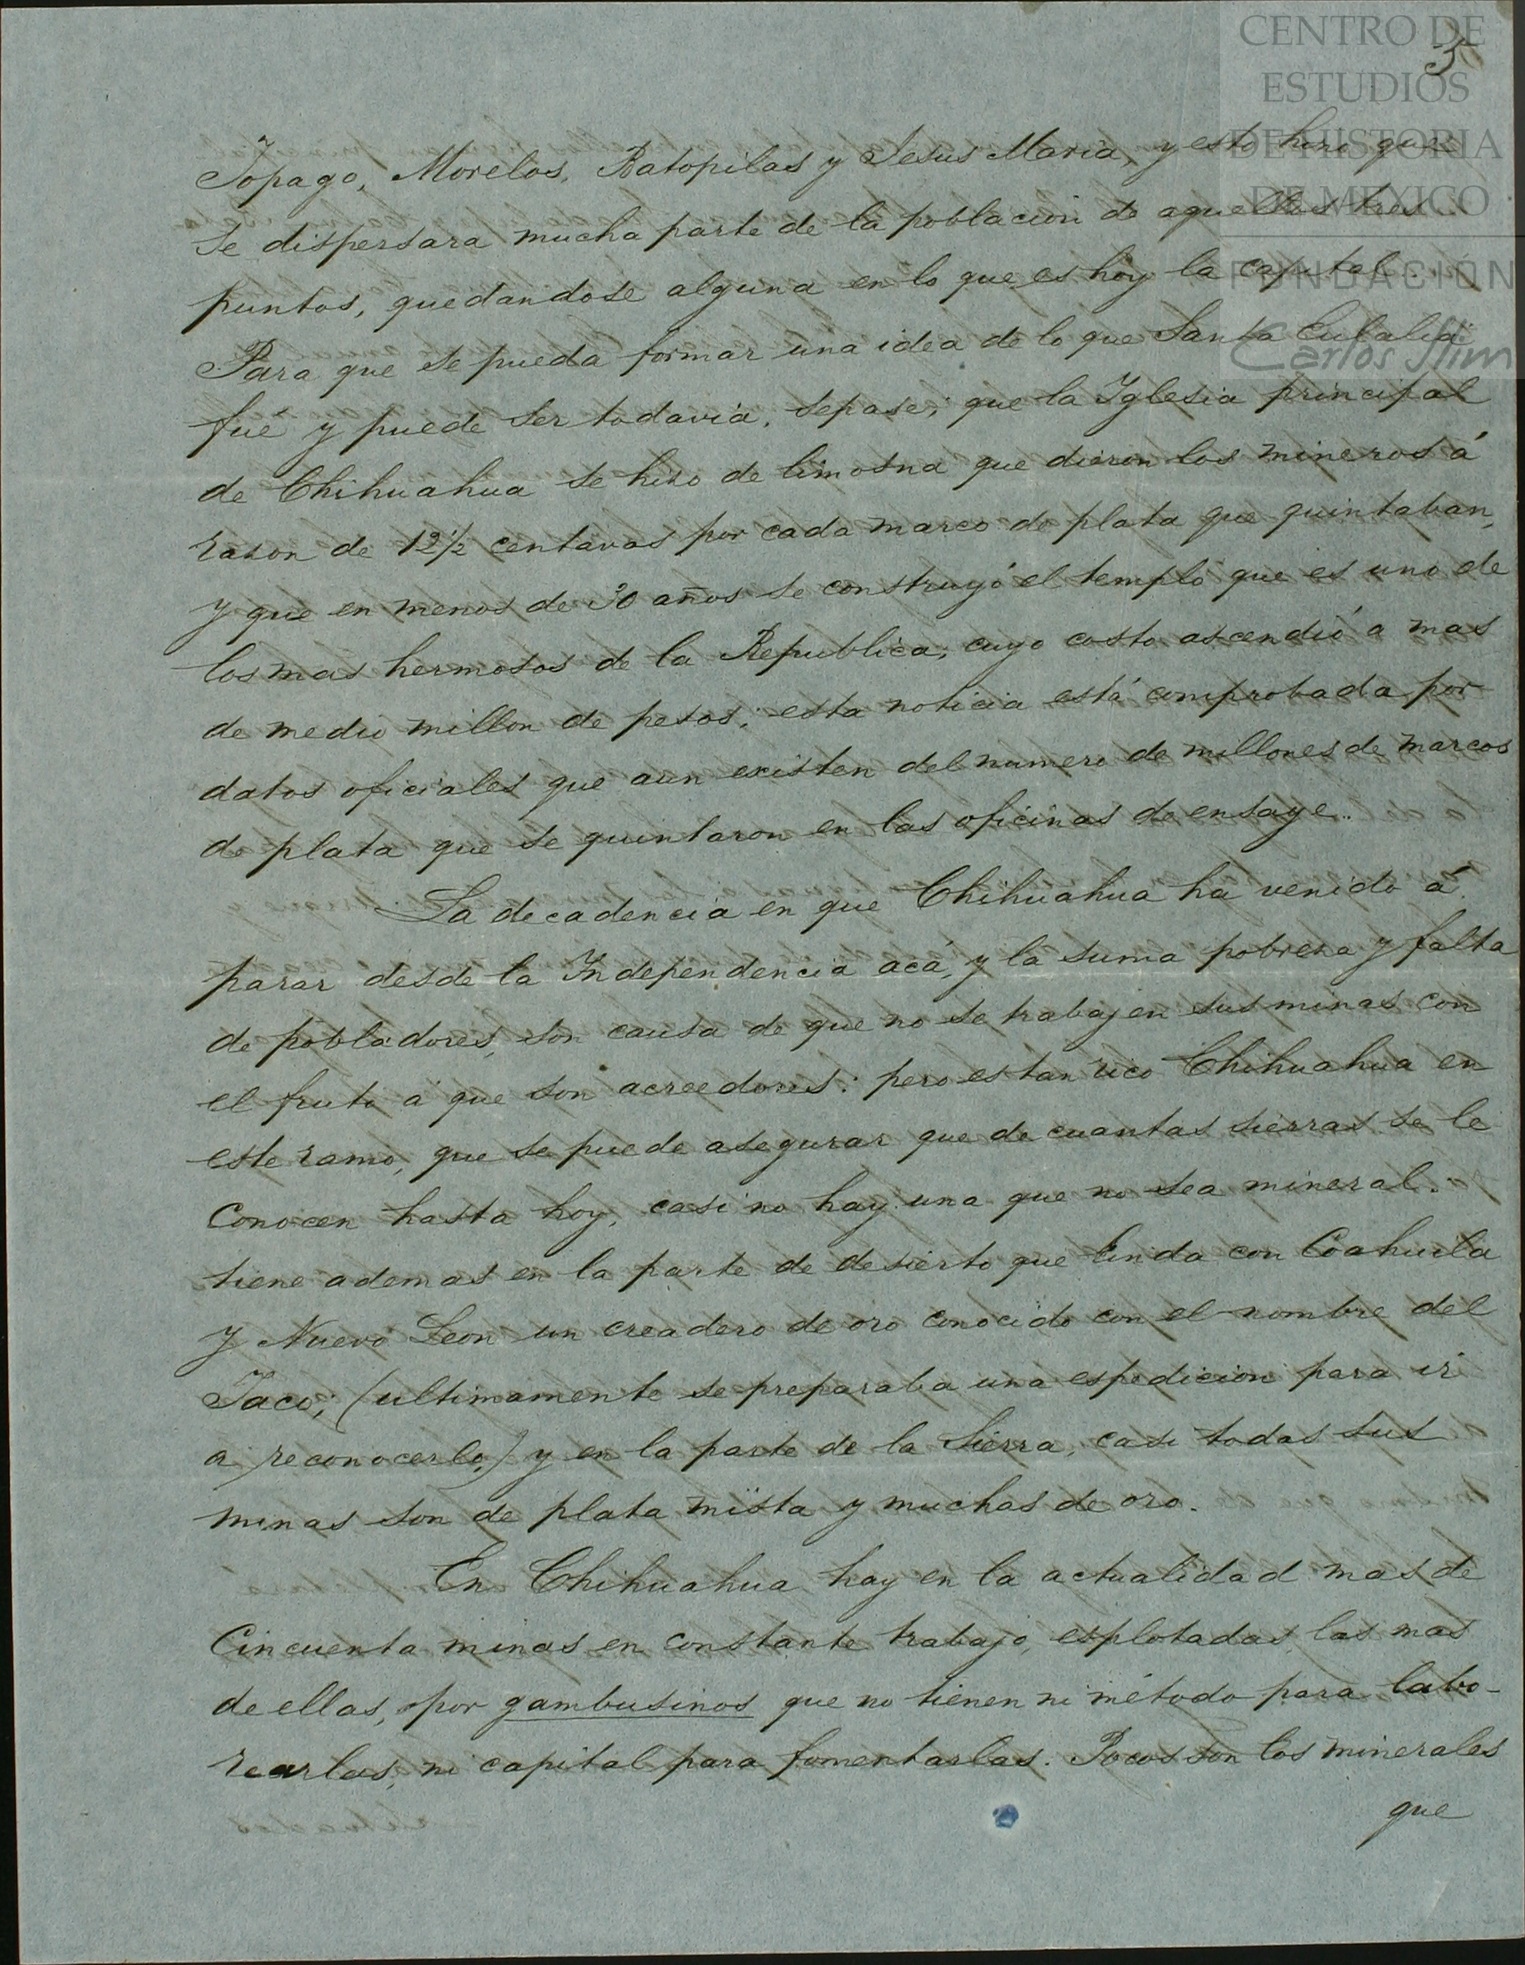 CENTRO DE
ESTUDIOS
DE HISTORIA
DE MEXICO
FUNDACIÓN
Carlos Slim
3
Topago, Morelos, Batopilas y Jesus Maria, y esto hizo que
se dispersara mucha parte de la poblacion de aquellos tres
puntos, quedandose alguna en lo que es hoy la capital.
Para que se pueda formar una idea de lo que Santa Eulalia
fué y puede ser todavia, sepase, que la Iglesia principal
de Chihuahua se hizo de limosna que dieron los mineros á
razon de 12½ centavos por cada marco de plata que quintaban,
y que en menos de 30 años se construyó el templo que es uno de
los mas hermosos de la Republica, cuyo costo ascendió a mas
de medio millon de pesos; esta noticia está comprobada por
datos oficiales que aun existen del numero de millones de marcos
de plata que se quintaron en las oficinas de ensaye.
La decadencia en que Chihuahua ha venido á
parar desde la Independencia acá, y la suma pobreza y falta
de pobladores, son causa de que no se trabajen sus minas con
el fruto á que son acreedores: pero es tan rico Chihuahua en
este ramo, que se puede asegurar que de cuantas sierras se le
conocen hasta hoy, casi no hay una que no sea mineral.
tiene ademas en la parte de desierto que linda con Coahuila
y Nuevo Leon un creadero de oro conocido con el nombre del
Jaco; (ultimamente se preparaba una espedicion para ir
a reconocerlo,) y en la parte de la Sierra, casi todas sus
minas son de plata mista y muchas de oro.
En Chihuahua hay en la actualidad mas de
Cincuenta minas en constante trabajo, esplotadas las mas
de ellas, por gambusinos que no tienen ni método para labo-
rearlas, ni capital para fomentarlas. Pocos son los minerales
que